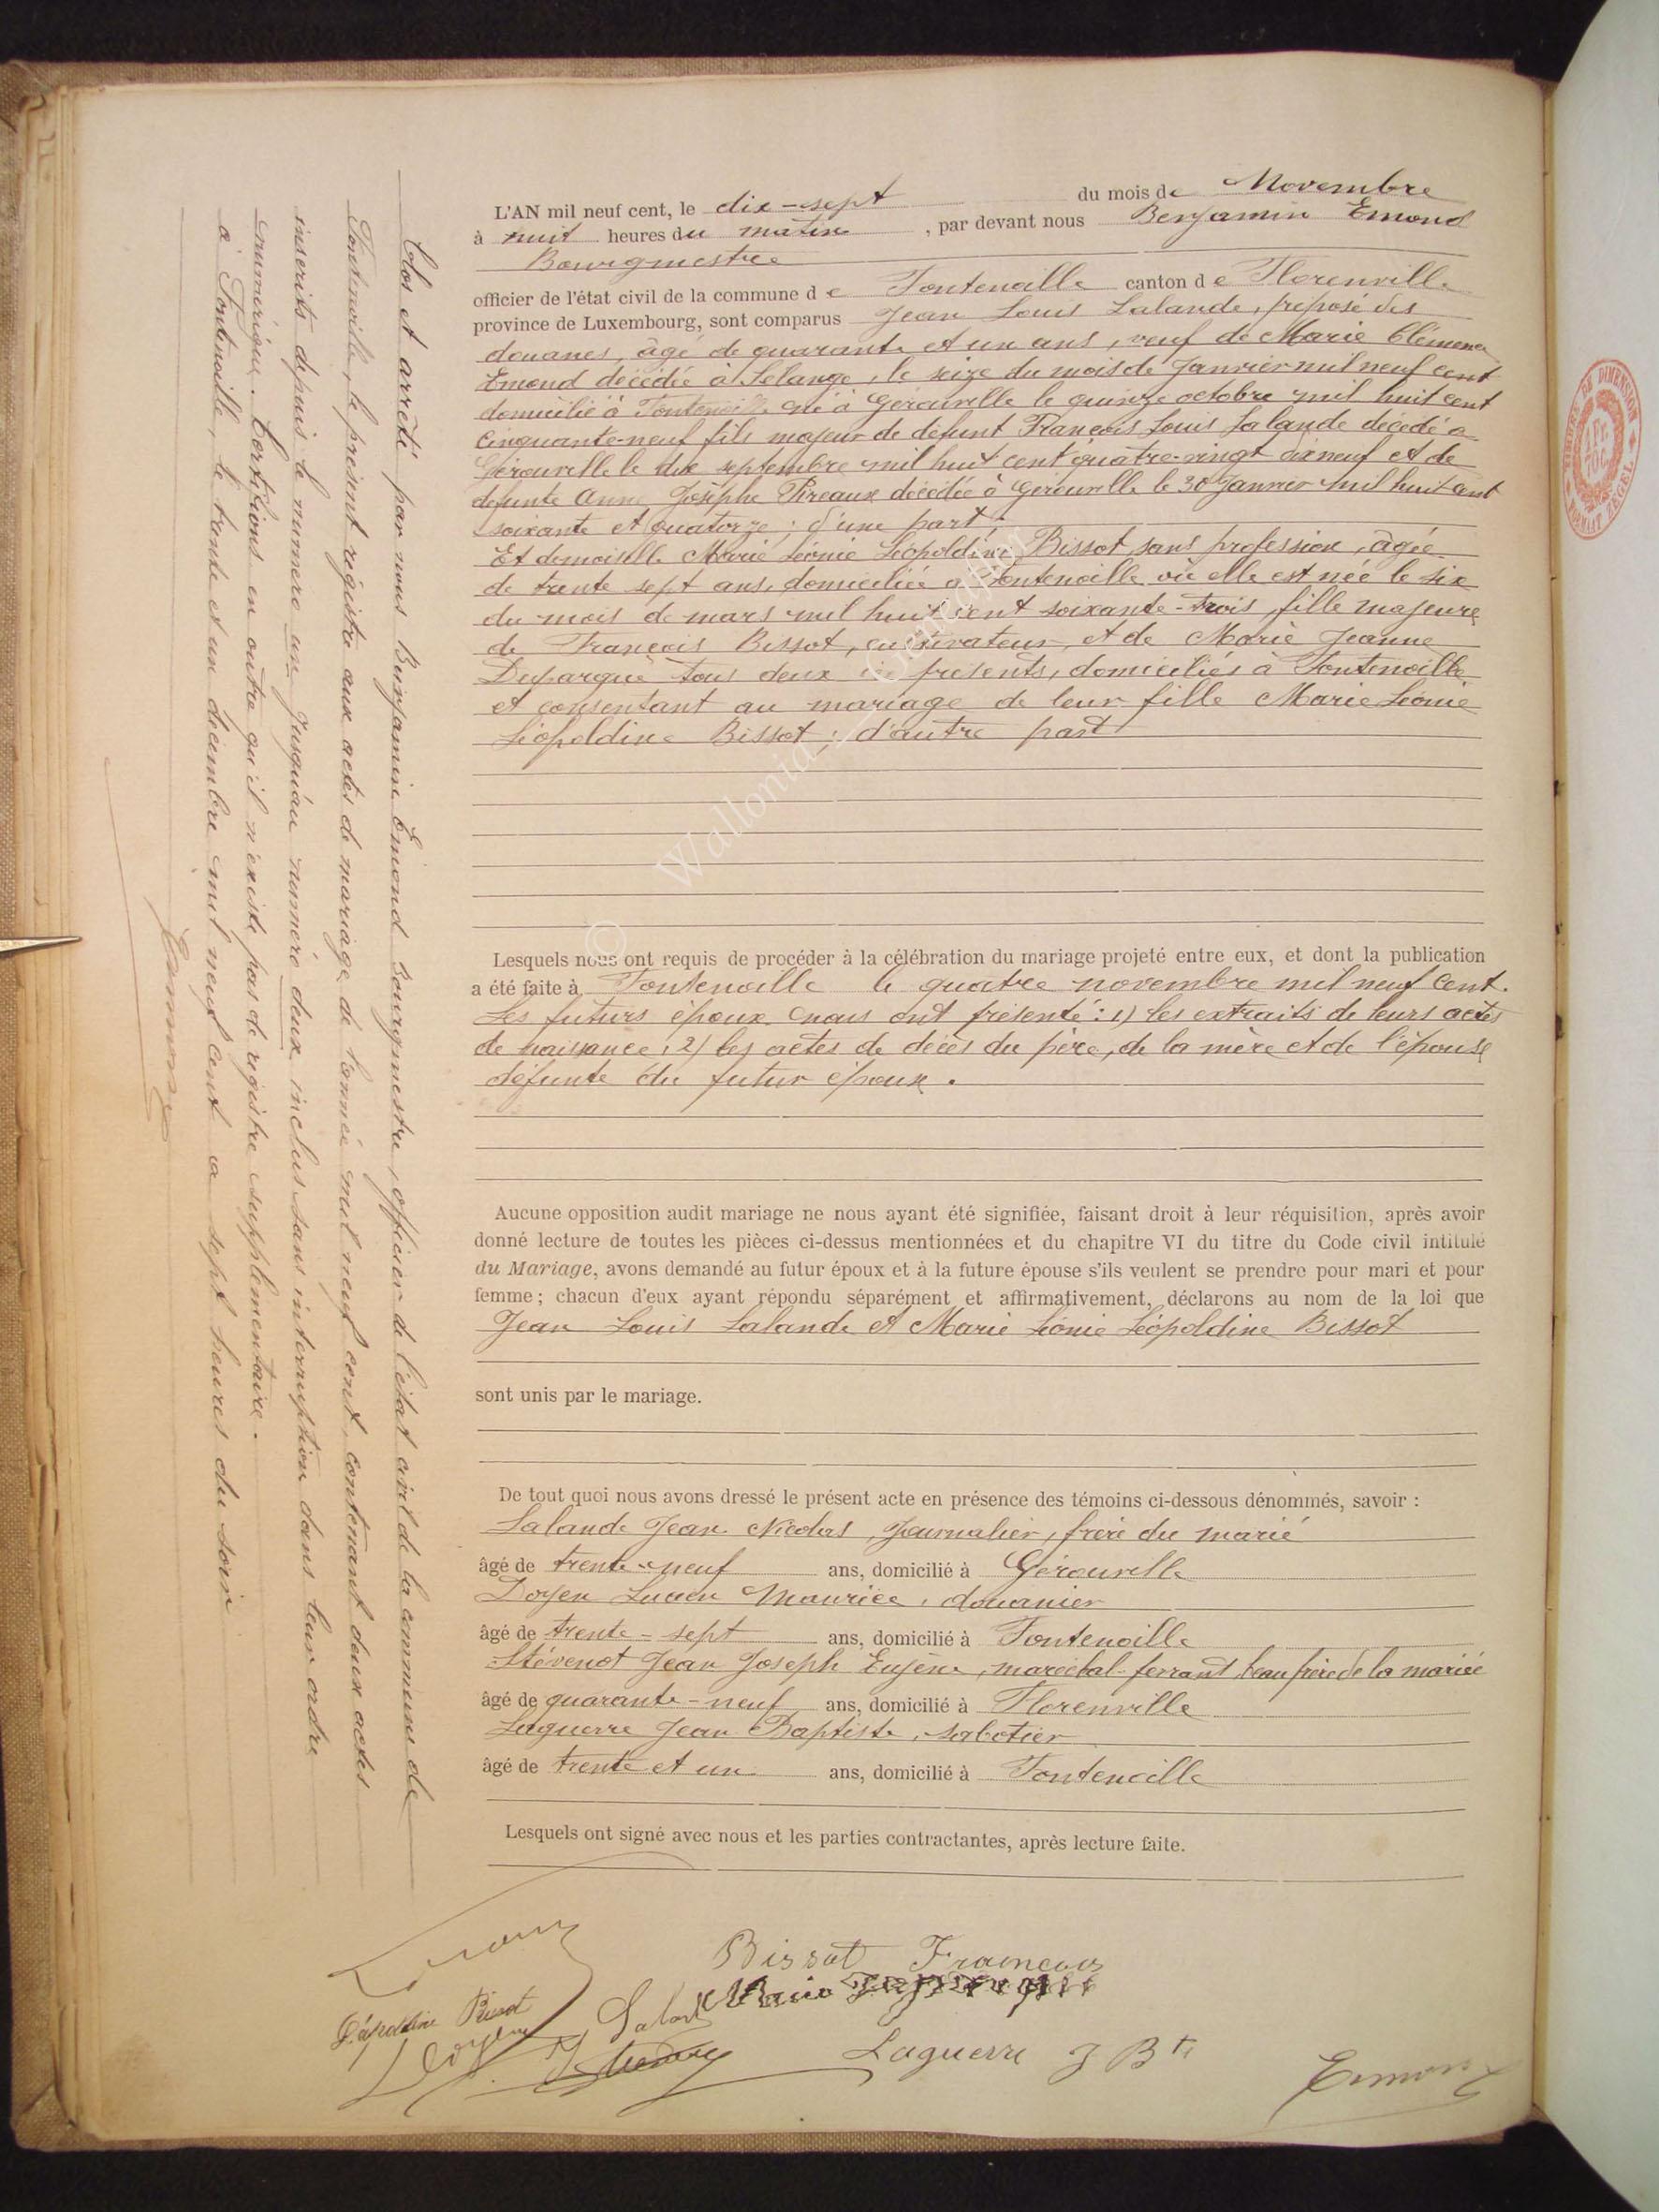 L'AN mil neuf cent, le dix-sept du mois de Novembre
à huit heures du matin, par devant nous Benjamin Emond
Bourgmestre
officier de l'état civil de la commune de Fontenoille canton de Florenville
province de Luxembourg, sont comparus Jean Louis Lalande, préposé des
douanes, âgé de quarante et un ans, veuf de Marie Clémence
Emond décédée à Selange, le seize du mois de Janvier mil neuf cent
domicilié à Fontenoille né à Gérouville le quinze octobre mil huit cent
cinquante-neuf fils majeur de défunt François Louis Lalande décédé à
Gérouville le dix septembre mil huit cent quatre-vingt dix neuf et de
défunte Anne Josèphe Pireaux décédée à Gérouville le 30 Janvier mil huit cent
soixante et quatorze ; d'une part ;
Et demoiselle Marie Léonie Léopoldine Bissot, sans profession, âgée
de trente sept ans, domiciliée à Fontenoille où elle est née le six
du mois de mars mil huit cent soixante-trois, fille majeure
de François Bissot, cultivateur, et de Marie Jeanne
Duparque tous deux ici présents, domiciliés à Fontenoille
et consentant au mariage de leur fille Marie Léonie
Léopoldine Bissot ; d'autre part
Lesquels nous ont requis de procéder à la célébration du mariage projeté entre eux, et dont la publication
a été faite à Fontenoille le quatre novembre mil neuf cent.
Les futurs époux nous ont présenté : 1) les extraits de leurs actes
de naissance ; 2) les actes de décès du père, de la mère et de l'épouse
défunte du futur époux.
Aucune opposition audit mariage ne nous ayant été signifiée, faisant droit à leur réquisition, après avoir
donné lecture de toutes les pièces ci-dessus mentionnées et du chapitre VI du titre du Code civil intitulé
du Mariage, avons demandé au futur époux et à la future épouse s'ils veulent se prendre pour mari et pour
femme ; chacun d'eux ayant répondu séparément et affirmativement, déclarons au nom de la loi que
Jean Louis Lalande et Marie Léonie Léopoldine Bissot
sont unis par le mariage.
De tout quoi nous avons dressé le présent acte en présence des témoins ci-dessous dénommés, savoir :
Lalande Jean Nicolas, Journalier, frère du marié
âgé de trente-neuf ans, domicilié à Gérouville
Doyen Lucien Maurice, douanier
âgé de trente-sept ans, domicilié à Fontenoille
Stévenot Jean Joseph Eugène, maréchal-ferrant, beau frère de la mariée
âgé de quarante-neuf ans, domicilié à Florenville
Laguerre Jean Baptiste, sabotier
âgé de trente et un ans, domicilié à Fontenoille
Lesquels ont signé avec nous et les parties contractantes, après lecture faite.
Bissot François
Léopoldine Bissot
Marie
Doyen
Laguerre J Bte
Emond
Clos et arrêté par nous Benjamin Emond bourgmestre, officier de l'état civil de la commune de
Fontenoille, le présent registre aux actes de mariage de l'année mil neuf cent, contenant deux actes
inscrits depuis le numéro un jusqu'au numéro deux inclus sans interruption dans leur ordre
numérique. Certifions en outre qu'il n'existe pas de registre supplémentaire.
à Fontenoille, le trente et un décembre mil neuf cent à sept heures du soir
Emond